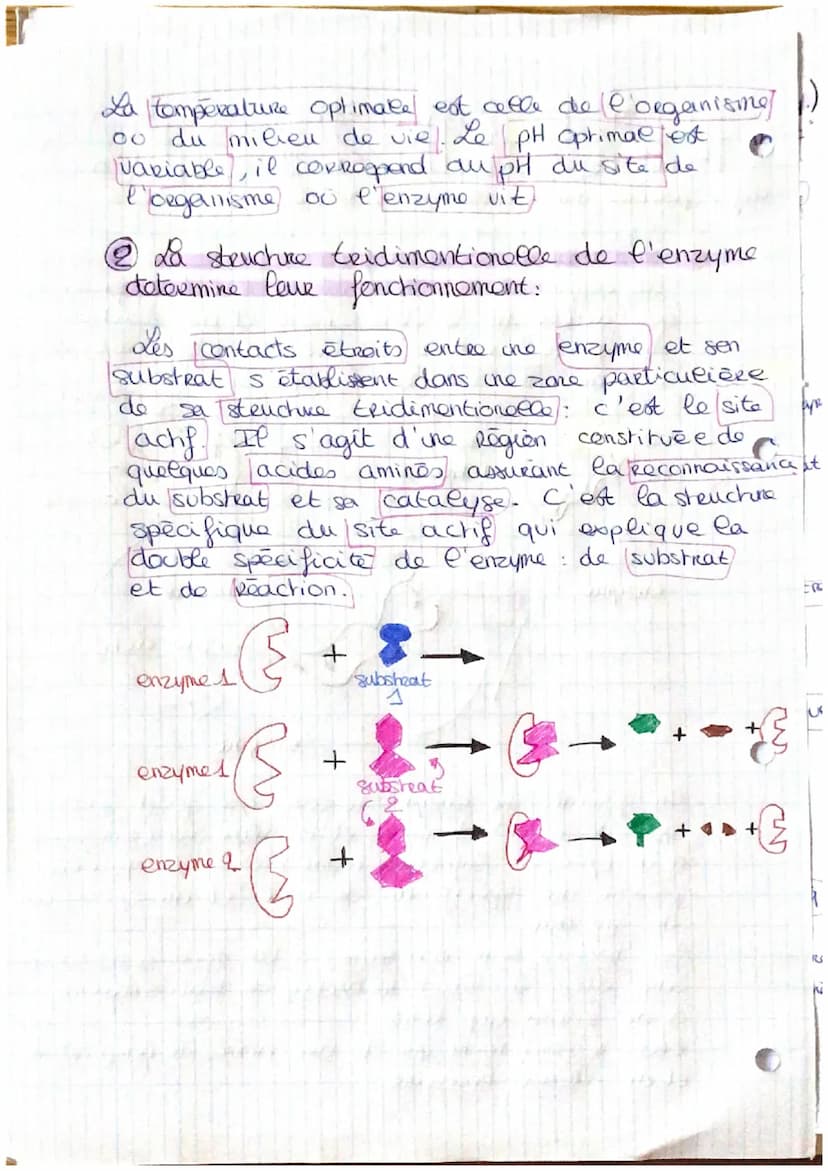 La température optimale est celle de l'organisme
où du milieu de vie. Le pH optimal est
variable, il correspond au pH du site de
l'organisme où l'enzyme vit.
② La structure tridimentionelle de l'enzyme
determine leur fonctionnement:
Les contacts étroits entre une enzyme et son
substrat s'établissent dans une zone particulière
de sa structure tridimentionelle: c'est le site
actif. Il s'agit d'une région constituée de
quelques acides aminés assurant la reconnaissance
du substrat et sa catalyse. C'est la structure
spécifique du site actif qui explique la
double spécificité de l'enzyme : de substrat
et de réaction.
enzyme 1 + substrat 1
enzyme 1 + substrat 2 + +
enzyme 2 + + +